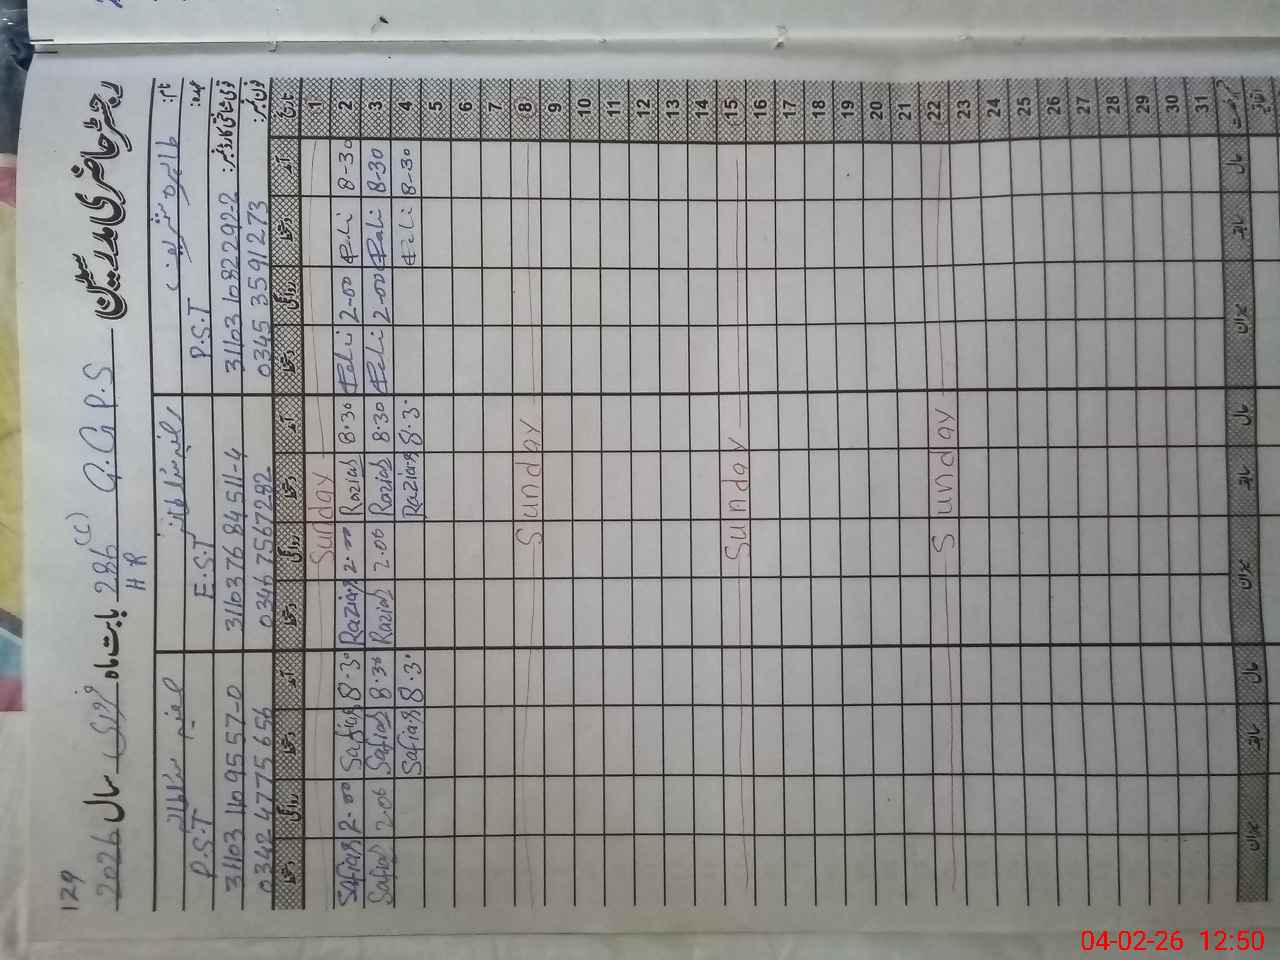 129
رجسٹر حاضری مدرسین G.G.P.S 286 (c) HR بابت ماہ فروری سال 2026
نام:
عہدہ: P.S.T E.S.T P.S.T
قومی شناختی کارڈ نمبر: 31103 1082292-2 3110376 84511-4 31103 1409557-0
فون نمبر: 0345 3591273 0346 7567282 0342 4775656
تاریخ آمد دستخط روانگی دستخط آمد دستخط روانگی دستخط آمد دستخط روانگی دستخط
1 Sunday
2 8-30 2-00 8.30 Raziah 2.00 Raziah 8.30 Safiah 2.00 Safiah
3 8-30 2-00 8.30 Raziah 2.00 Raziah 8.30 Safiah 2.00 Safiah
4 8-30 Raziah 8.30 Safiah 8.30
5
6
7
8 Sunday
9
10
11
12
13
14
15 Sunday
16
17
18
19
20
21
22 Sunday
23
24
25
26
27
28
29
30
31
حال سابقہ میزان حال سابقہ میزان حال سابقہ میزان
04-02-26 12:50